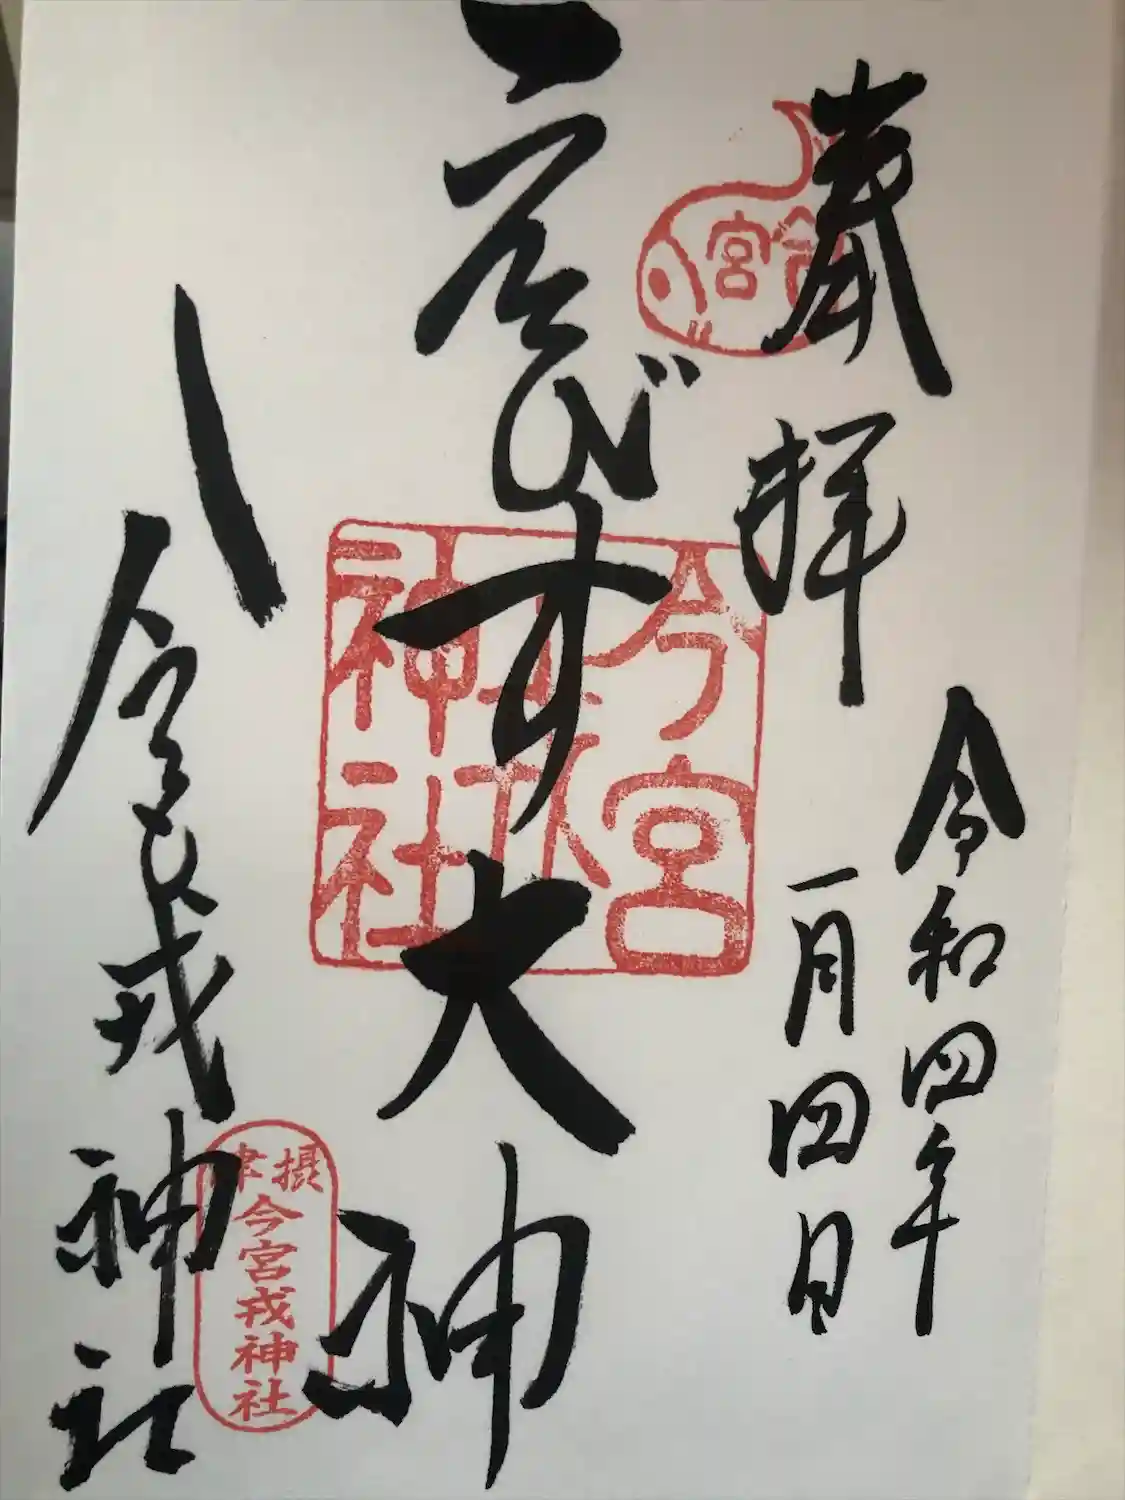 歳拝
令和四年
一月四日
えびす大神
今宮戎神社
今宮
今宮
戎
神社
摂津
今宮戎神社